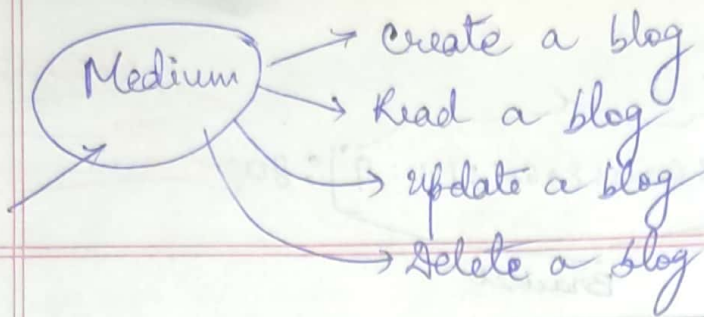 Medium
Create a blog
Read a blog
Update a blog
Delete a blog